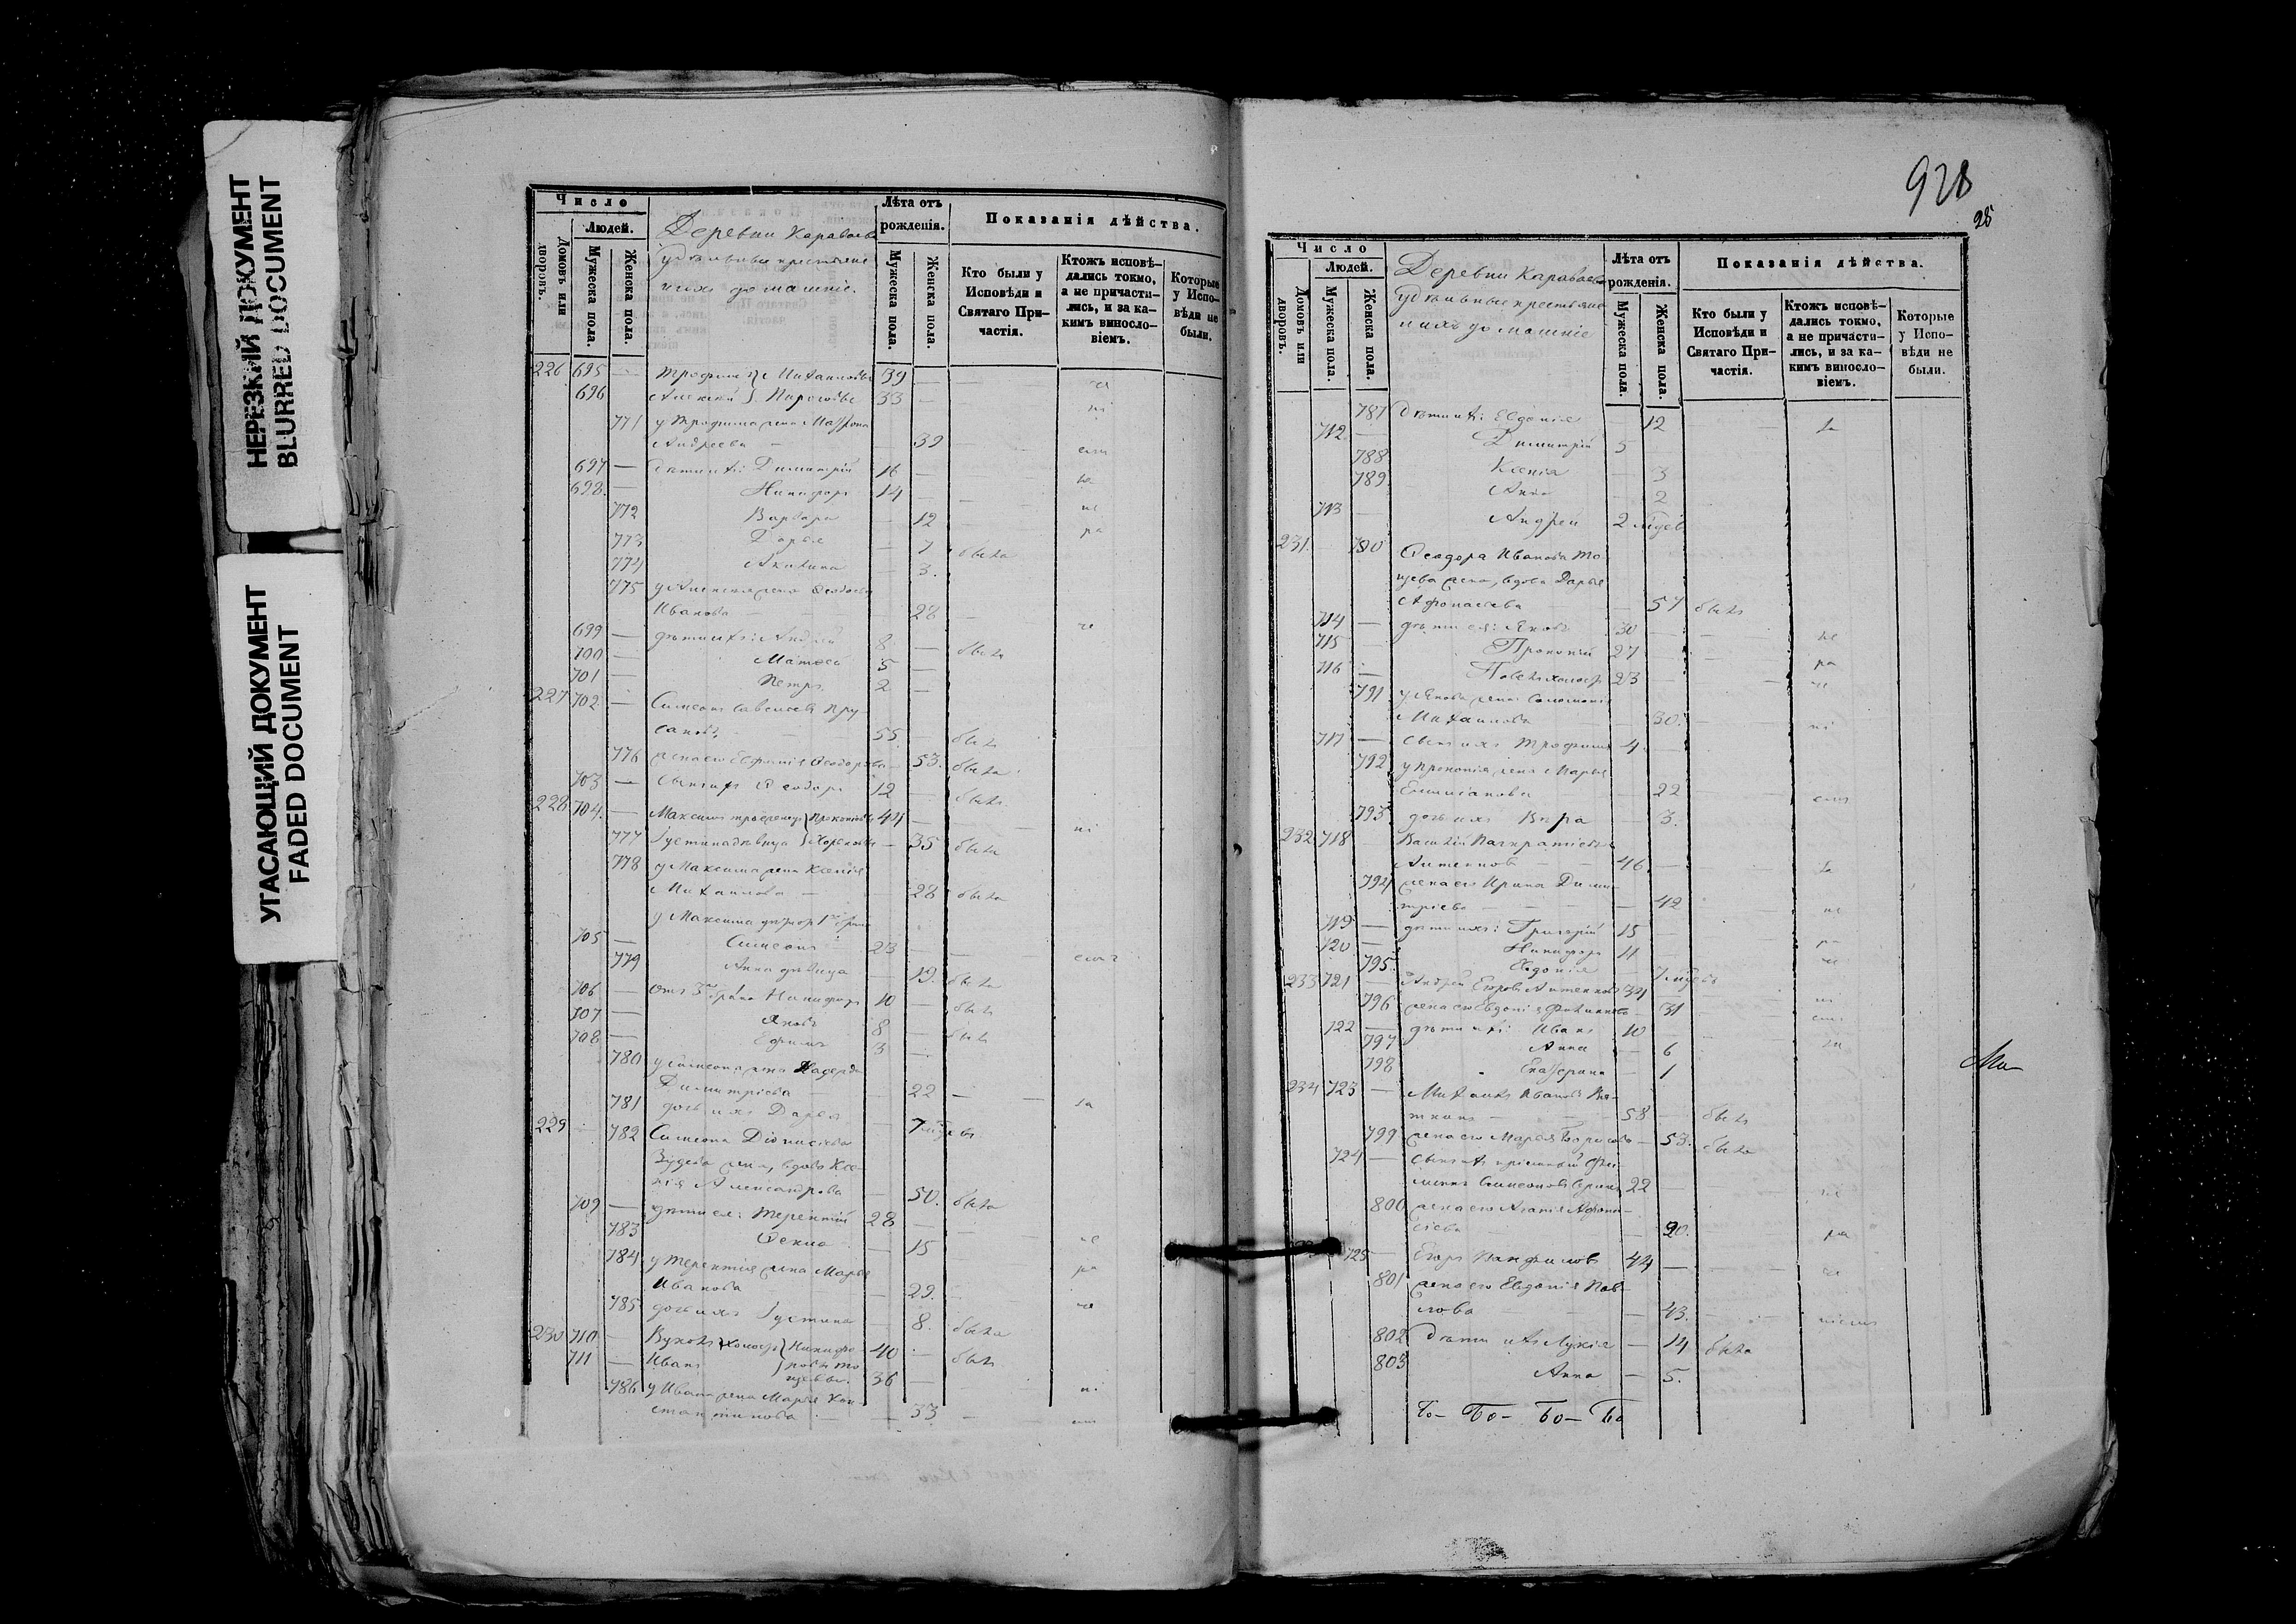 НЕРЕЗКИЙ ДОКУМЕНТ
BLURRED DOCUMENT
УГАСАЮЩИЙ ДОКУМЕНТ
FADED DOCUMENT
Число
Людей.
Домовъ или дворовъ.
Мужеска пола.
Женска пола.
Деревни Караваева
удѣльные крестьяне
и ихъ домашніе.
Лѣта отъ рожденія.
Мужеска пола.
Женска пола.
Показанія дѣйства.
Кто были у Исповѣди и Святаго Причастія.
Ктожъ исповѣдались токмо, а не причастились, и за какимъ винословіемъ.
Которые у Исповѣди не были.
226 695 — Трофимъ Михайловы 39 —
696 Алексѣй 33 —
771 у Трофима жена Матрона
Андреева — 39
697 — дѣти ихъ: Димитрій 16 —
698 — Никифоръ 14 —
772 Варвара — 12
773 Дарья — 7 была
774 Акилина — 3.
775 у Алексѣя жена Ѳеодосья
Иванова — 28
699 — дѣти ихъ: Андрей 8 — былъ
700 — Матѳей 5 —
701 — Петръ 2 —
227 702 — Симеонъ Савельевъ Пру-
сановъ 55 — былъ
776 жена его Евфимія Ѳеодорова — 53. была
703 — сынъ ихъ Ѳеодоръ 12 — былъ
228 704. — Максимъ Прокопіевы 44 —
777 Іустина дѣвица — 35 была
778 у Максима жена Ксенія
Михайлова — 28 была
у Максима дѣти отъ 1го брака
705 — Симеонъ 23 —
779 Анна дѣвица — 19. была
706 — отъ 3го брака Никифоръ 10 — былъ
707 — Яковъ 8 — былъ
708 — Ефимъ 3 —
780 у Симеона жена Надежда
Димитріева — 22 —
781 дочь ихъ Дарья — 7 мѣсев.
229 — 782 Симеона Діонисіева
жена, вдова Ксе-
нія Александрова — 50. была
709 — дѣти ея: Терентій 28 —
783 Ѳекла — 15
784 у Терентія жена Марья
Иванова — 29.
785 дочь ихъ Іустина — 8. была
230 710 — Вуколъ холостъ Никифо- 40 — былъ
711 — Иванъ ровы То-
щевы. 36 —
786 у Ивана жена Марья Кон-
стантинова — 33.
928
25
Число
Людей.
Домовъ или дворовъ.
Мужеска пола.
Женска пола.
Деревни Караваева
удѣльные крестьяне
и ихъ домашніе
Лѣта отъ рожденія.
Мужеска пола.
Женска пола.
Показанія дѣйства.
Кто были у Исповѣди и Святаго Причастія.
Ктожъ исповѣдались токмо, а не причастились, и за какимъ винословіемъ.
Которые у Исповѣди не были.
787 дѣти ихъ: Евдокія — 12
712. — Димитрій 5
788 Ксенія — 3
789. Анна — 2
713 — Андрей 2 мѣсев
231. 790 Ѳеодора Иванова То-
щева жена, вдова Дарья
Афонасьева — 57 была
714 — дѣти ея: Яковъ 30 —
715 — Прокопій 27
716 — Павелъ холостъ 23 —
791 у Якова жена Соломонія
Михайлова — 30.
717 — сынъ ихъ Трофимъ 4. —
792 у Прокопія жена Марья
Емиліанова 22
793. дочь ихъ Вѣра — 3.
232 718 Василій Панкратіевъ
Антенновъ — 46. —
794 жена его Ирина Дими-
тріева — 42
719 — дѣти ихъ: Григорій 15 —
720 — Никифоръ 11 —
795. Евдокія — 7 мѣсев
233 721 — Андрей Егоровъ Антенновъ 34 —
796 жена его Евдокія Филиппова — 31
722 — дѣти ихъ: Иванъ 10
797 Анна — 6
798 Екатерина — 1
234 723 — Михаилъ Ивановъ
58 — былъ
799 жена его Марья Борисова — 53. была
724 — сынъ ихъ пріемный
Симеоновъ 22 —
800 жена его Агапія Афона-
сіева — 20.
725 — Егоръ Панфиловъ 44 —
801 жена его Евдокія Пав-
лова — 43.
802 дѣти ихъ Лукія — 14 была
803 Анна — 5.
Бо- Бо- Бо- Бо